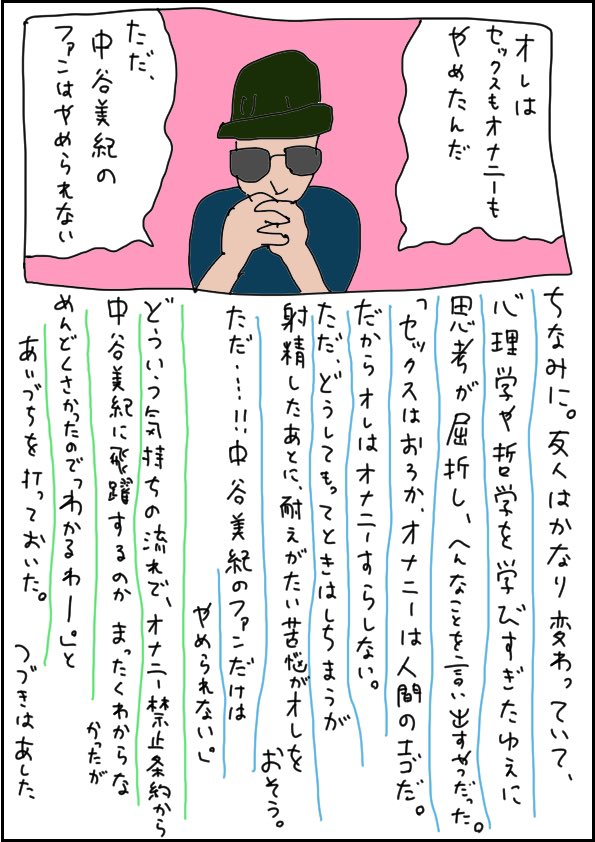 オレは
セックスもオナニーも
やめたんだ
ただ、
中谷美紀の
ファンはやめられない
ちなみに。友人はかなり変わっていて、
心理学や哲学を学びすぎたゆえに
思考が屈折し、へんなことを言い出すやつだった。
「セックスはおろか、オナニーは人間のエゴだ。
だからオレはオナニーすらしない。
ただ、どうしてもってときはしちまうが
射精したあとに、耐えがたい苦悩がオレを
おそう。
ただ……!!中谷美紀のファンだけは
やめられない」
どういう気持ちの流れで、オナニー禁止条約から
中谷美紀に飛躍するのか まったくわからな
かったが
めんどくさかったので「わかるわー」と
あいづちを打っておいた。
つづきはあした、